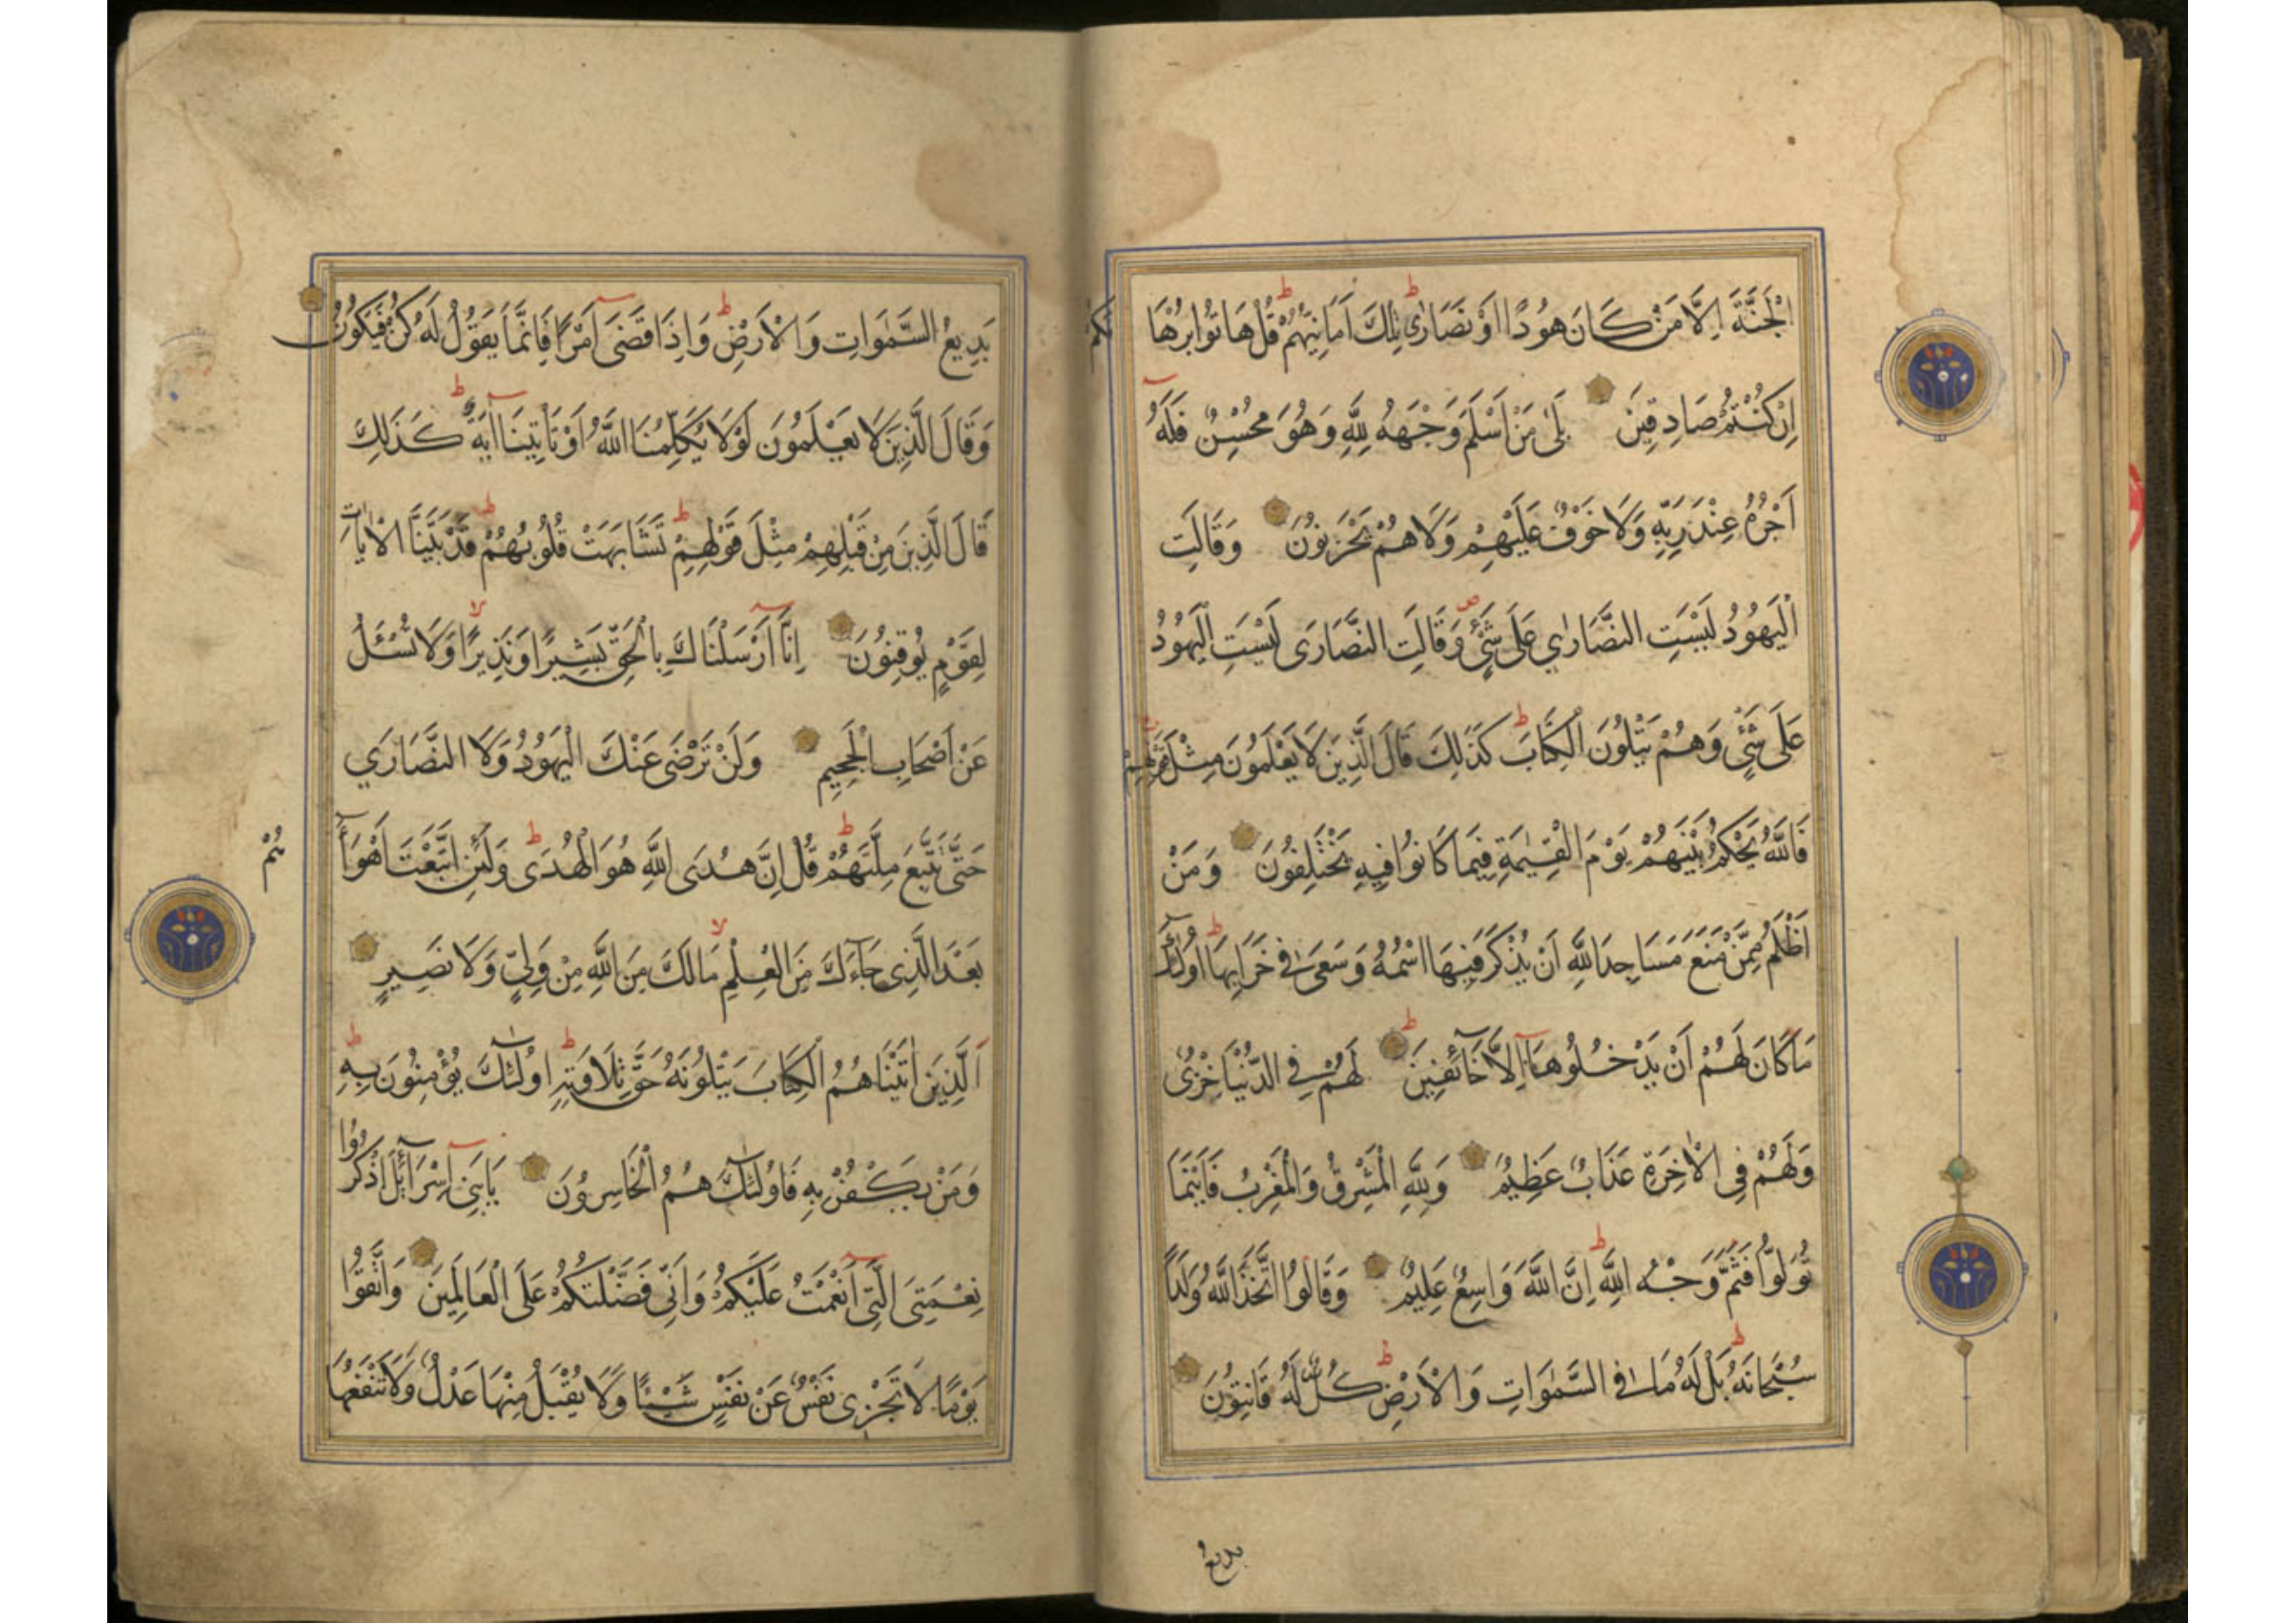 الْجَنَّةَ اِلَّا مَنْ كَانَ هُودًا اَوْ نَصَارٰى تِلْكَ اَمَانِيُّهُمْ قُلْ هَاتُوا بُرْهَا
نَكُمْ
اِنْ كُنْتُمْ صَادِقِينَ بَلٰى مَنْ اَسْلَمَ وَجْهَهُ لِلّٰهِ وَهُوَ مُحْسِنٌ فَلَهُ
اَجْرُهُ عِنْدَ رَبِّهِ وَلَا خَوْفٌ عَلَيْهِمْ وَلَا هُمْ يَحْزَنُونَ وَقَالَتِ
الْيَهُودُ لَيْسَتِ النَّصَارٰي عَلَى شَئٍْ وَقَالَتِ النَّصَارَى لَيْسَتِ الْيَهُودُ
عَلَى شَئٍْ وَهُمْ يَتْلُونَ الْكِتَابَ كَذٰلِكَ قَالَ الَّذِينَ لَا يَعْلَمُونَ مِثْلَ قَوْلِهِمْ
فَاللّٰهُ يَحْكُمُ بَيْنَهُمْ يَوْمَ الْقِيٰمَةِ فِيمَا كَانُوا فِيهِ يَخْتَلِفُونَ وَمَنْ
اَظْلَمُ مِمَّنْ مَنَعَ مَسَاجِدَ اللّٰهِ اَنْ يُذْكَرَ فِيهَا اسْمُهُ وَسَعَى فِي خَرَابِهَا اُولٰئِكَ
مَا كَانَ لَهُمْ اَنْ يَدْخُلُوهَا اِلَّا خَائِفِينَ لَهُمْ فِي الدُّنْيَا خِزْىٌ
وَلَهُمْ فِي الْاٰخِرَةِ عَذَابٌ عَظِيمٌ وَلِلّٰهِ الْمَشْرِقُ وَالْمَغْرِبُ فَاَيْنَمَا
تُوَلُّوا فَثَمَّ وَجْهُ اللّٰهِ اِنَّ اللّٰهَ وَاسِعٌ عَلِيمٌ وَقَالُوا اتَّخَذَ اللّٰهُ وَلَدًا
سُبْحَانَهُ بَلْ لَهُ مَا فِي السَّمٰوَاتِ وَالْاَرْضِ كُلٌّ لَهُ قَانِتُونَ
بديع
بَدِيعُ السَّمٰوَاتِ وَالْاَرْضِ وَاِذَا قَضَى اَمْرًا فَاِنَّمَا يَقُولُ لَهُ كُنْ فَيَكُونُ
وَقَالَ الَّذِينَ لَا يَعْلَمُونَ لَوْلَا يُكَلِّمُنَا اللّٰهُ اَوْ تَاْتِينَا اٰيَةٌ كَذٰلِكَ
قَالَ الَّذِينَ مِنْ قَبْلِهِمْ مِثْلَ قَوْلِهِمْ تَشَابَهَتْ قُلُوبُهُمْ قَدْ بَيَّنَّا الْاٰيَاتِ
لِقَوْمٍ يُوقِنُونَ اِنَّا اَرْسَلْنَاكَ بِالْحَقِّ بَشِيرًا وَنَذِيرًا وَلَا تُسْئَلُ
عَنْ اَصْحَابِ الْجَحِيمِ وَلَنْ تَرْضَى عَنْكَ الْيَهُودُ وَلَا النَّصَارَي
حَتَّى تَتَّبِعَ مِلَّتَهُمْ قُلْ اِنَّ هُدَى اللّٰهِ هُوَ الْهُدَى وَلَئِنِ اتَّبَعْتَ اَهْوَآءَ
هُمْ
بَعْدَ الَّذِى جَاءَكَ مِنَ الْعِلْمِ مَا لَكَ مِنَ اللّٰهِ مِنْ وَلِيٍّ وَلَا نَصِيرٍ
اَلَّذِينَ اٰتَيْنَاهُمُ الْكِتَابَ يَتْلُونَهُ حَقَّ تِلَاوَتِهِ اُولٰئِكَ يُؤْمِنُونَ بِهِ
وَمَنْ يَكْفُرْ بِهِ فَاُولٰئِكَ هُمُ الْخَاسِرُونَ يَابَنِى اِسْرَآئِلَ اذْكُرُوا
نِعْمَتِىَ الَّتِى اَنْعَمْتُ عَلَيْكُمْ وَاَنِّى فَضَّلْتُكُمْ عَلَى الْعَالَمِينَ وَاتَّقُوا
يَوْمًا لَا تَجْزِى نَفْسٌ عَنْ نَفْسٍ شَيْئًا وَلَا يُقْبَلُ مِنْهَا عَدْلٌ وَلَا تَنْفَعُهَا